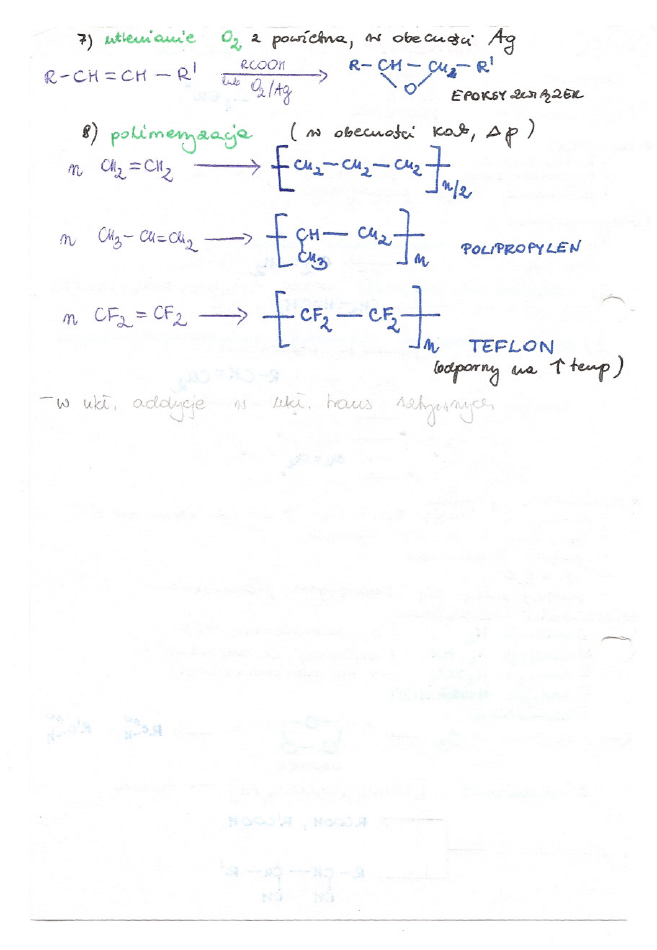 7) utlenianie O₂ z powietrza, w obecności Ag
R-CH=CH-R' RCOOH lub O₂/Ag → R-CH-CH₂-R' O
EPOKSYZWIĄZEK
8) polimeryzacja (w obecności kat, Δp)
n CH₂=CH₂ → [CH₂-CH₂-CH₂]n/2
n CH₃-CH=CH₂ → [CH-CH₂]n CH₃ POLIPROPYLEN
n CF₂=CF₂ → [CF₂-CF₂]n TEFLON
(odporny na ↑ temp)
-w ukł. addycje w ukł. trans